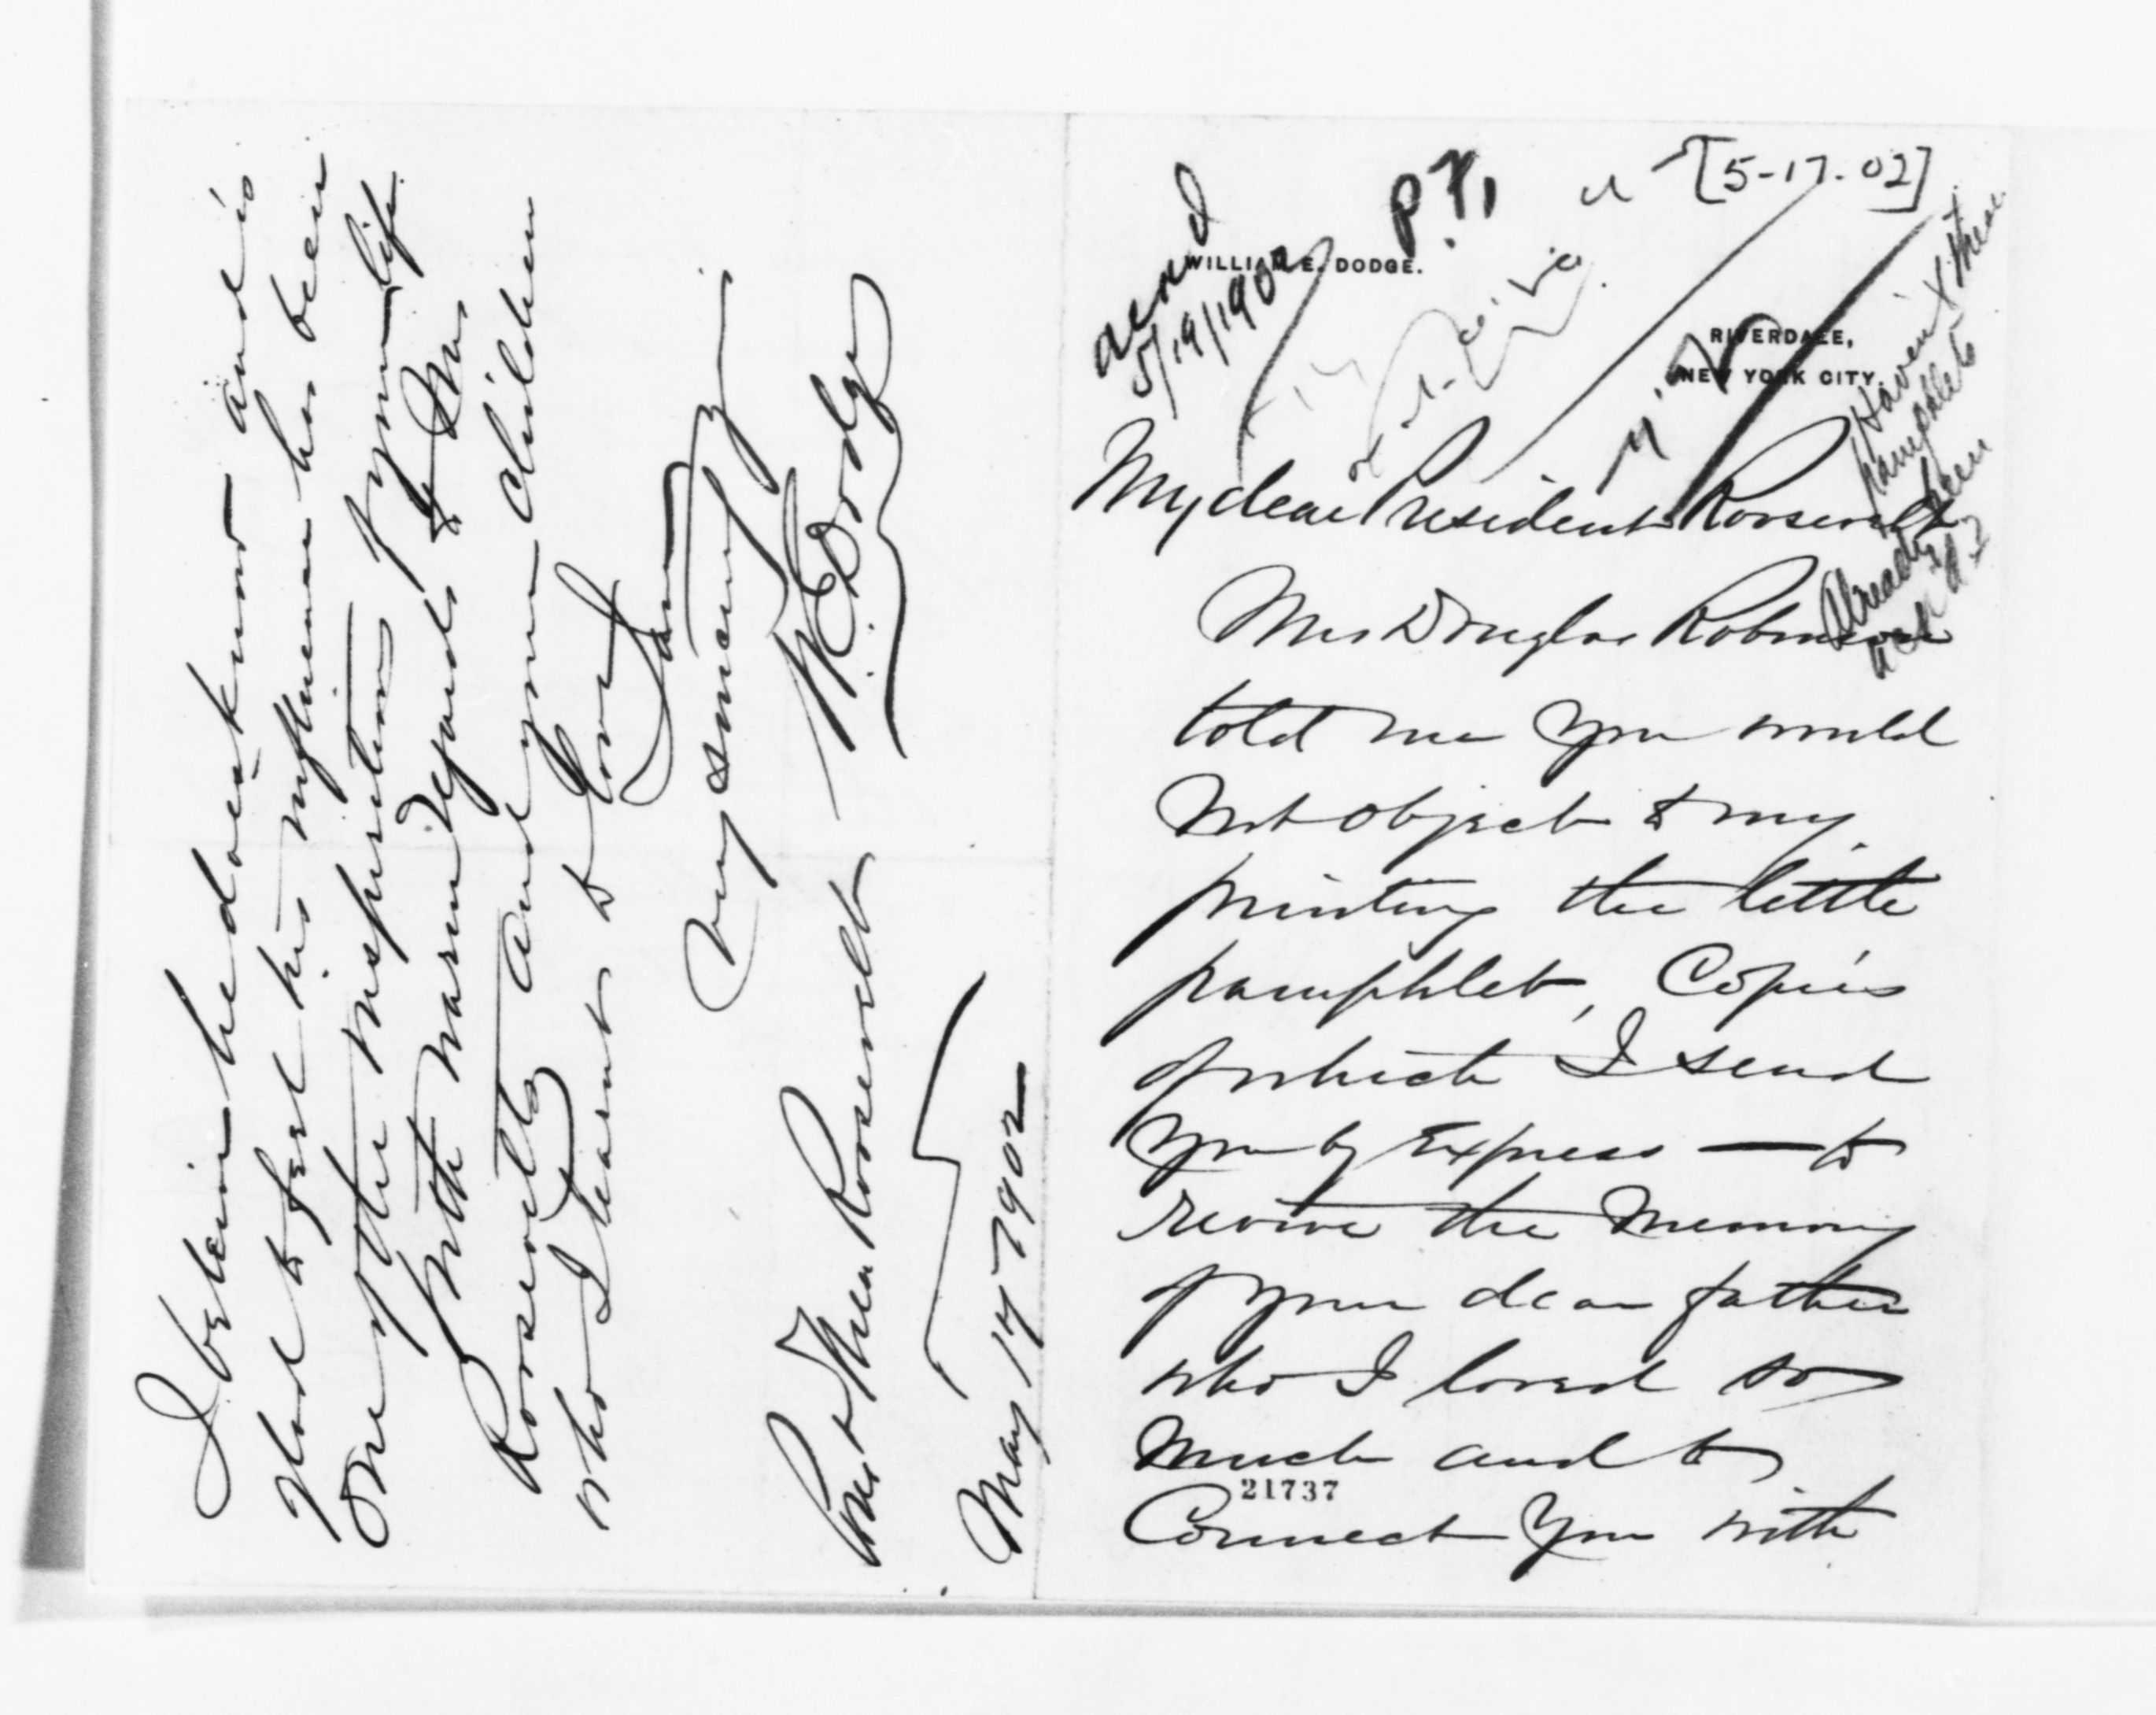 [5-17-02]
P.F.
ackd
5/19/1902
WILLIAM E. DODGE.
RIVERDALE,
NEW YORK CITY.
Haven't these
pamphlets
already been
ack'd?
My dear President Roosevelt
Mrs Douglas Robinson
told me you would
not object to my
printing the little
pamphlet, Copies
of which I send
you by Express — to
revive the memory
of your dear father
who I loved so
much and to
21737
Connect you with
I believe he does know and is
glad to feel his influence has been
one of the inspirations of your life
With warm regards to Mrs
Roosevelt and your children
who I learn to love
I am
Very sincerely
W. E. Dodge
Theo Roosevelt
May 17 1902